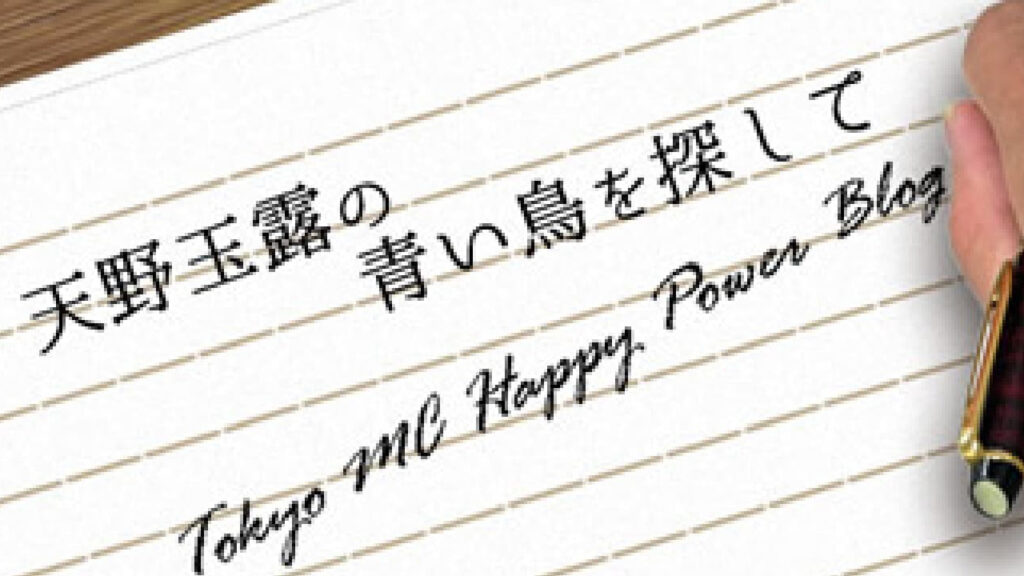 天野玉露の
青い鳥を探して
Tokyo MC Happy Power Blog